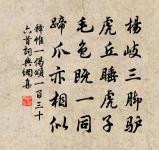 楊岐三脚驴
虎丘睡虎子
毛色既一同
蹄爪亦相似
释惟一偈頌一百三十
六首詞典網集